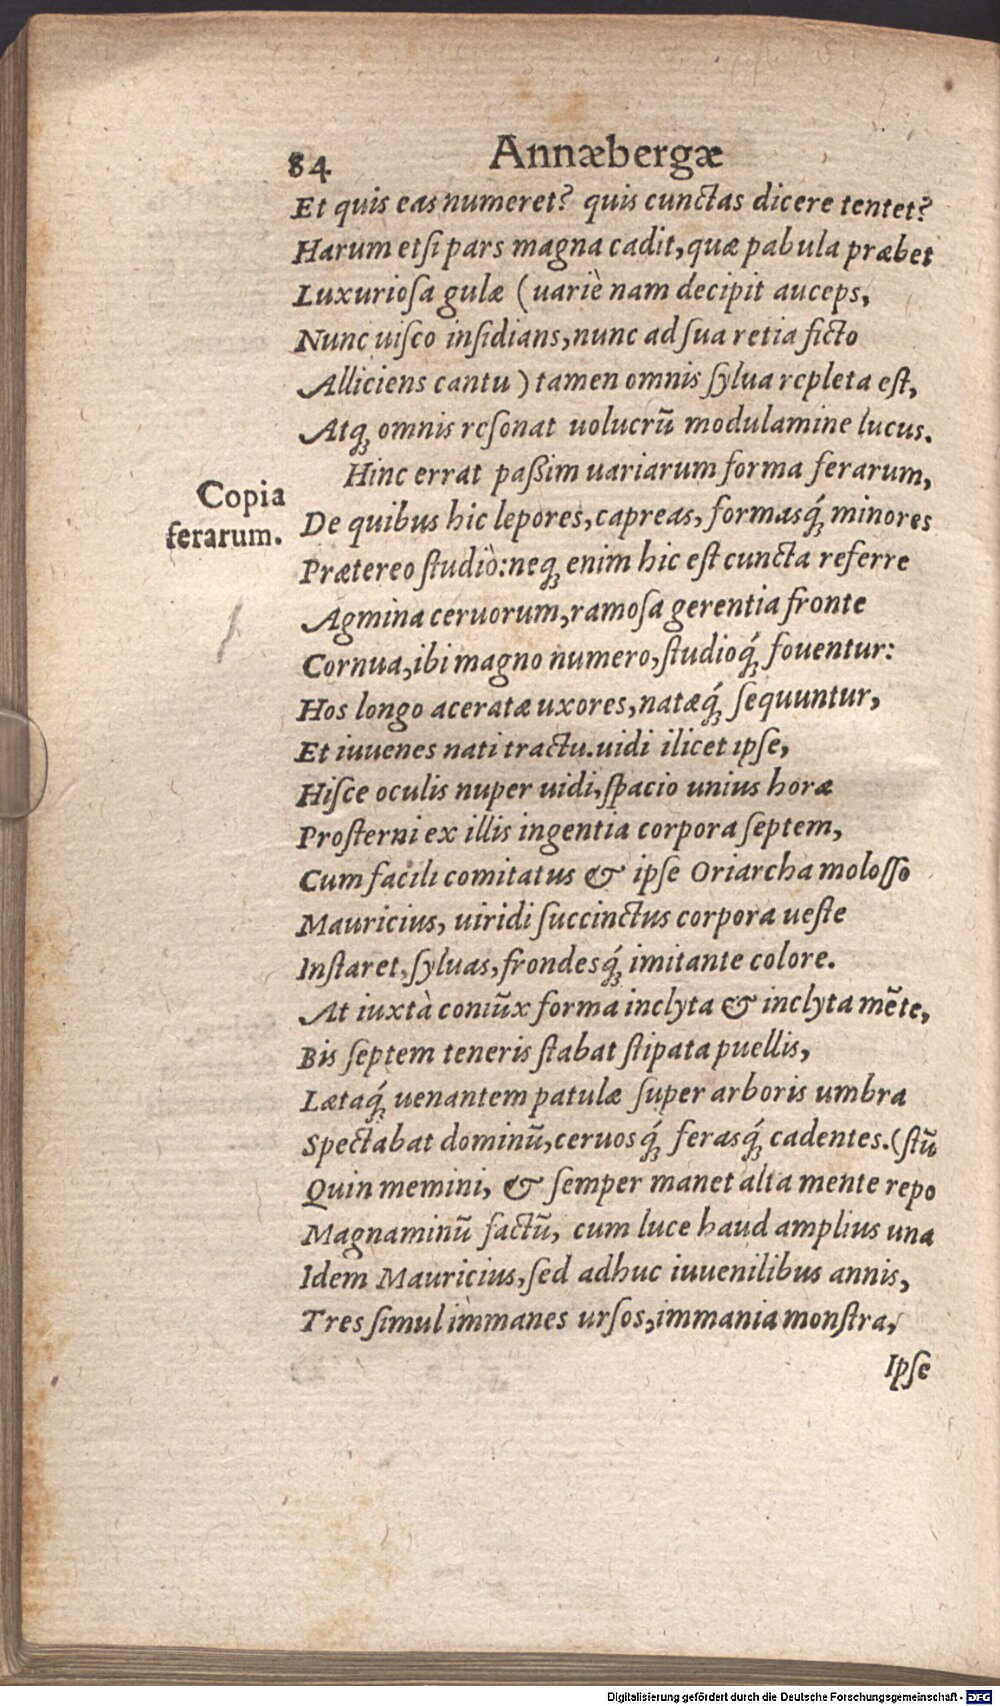 84 Annæbergæ
Et quis eas numeret? quis cunctas dicere tentet?
Harum etſi pars magna cadit, quæ pabula præbet
Luxurioſa gulæ (uariè nam decipit auceps,
Nunc uiſco inſidians, nunc ad ſua retia ficto
Alliciens cantu) tamen omnis ſylua repleta eſt,
Atq; omnis reſonat uolucrũ modulamine lucus.
Hinc errat paßim uariarum forma ferarum,
Copia
ferarum.
De quibus hic lepores, capreas, formasq́; minores
Prætereo ſtudiò: neq; enim hic eſt cuncta referre
Agmina ceruorum, ramoſa gerentia fronte
Cornua, ibi magno numero, ſtudioq́; fouentur:
Hos longo aceratæ uxores, natæq́; ſequuntur,
Et iuuenes nati tractu. uidi ilicet ipſe,
Hiſce oculis nuper uidi, ſpacio unius horæ
Proſterni ex illis ingentia corpora ſeptem,
Cum facili comitatus & ipſe Oriarcha moloſſo
Mauricius, uiridi ſuccinctus corpora ueſte
Inſtaret, ſyluas, frondesq́; imitante colore.
At iuxtà coniũx forma inclyta & inclyta mẽte,
Bis ſeptem teneris ſtabat ſtipata puellis,
Lætaq́; uenantem patulæ ſuper arboris umbra
Spectabat dominũ, ceruosq́; ferasq́; cadentes. (ſtũ
Quin memini, & ſemper manet alta mente repo
Magnaminũ factũ, cum luce haud amplius una
Idem Mauricius, ſed adhuc iuuenilibus annis,
Tres ſimul immanes urſos, immania monſtra,
Ipſe
Digitalisierung gefördert durch die Deutsche Forschungsgemeinschaft - DFG